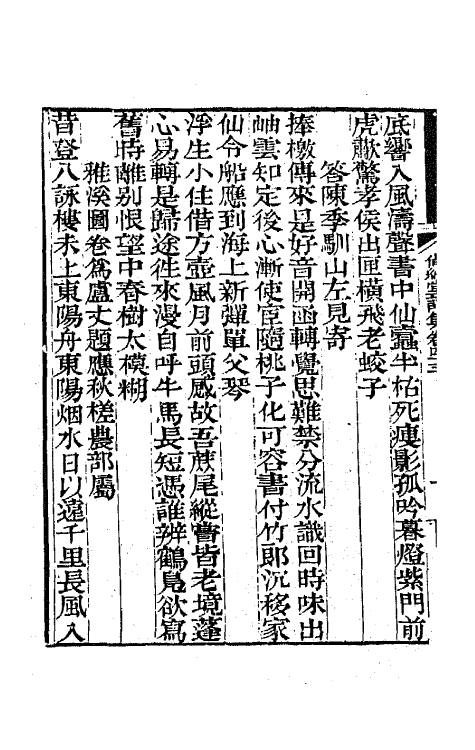 底響入風濤聲書中仙蠹半枯死瘦影孤吟暮燈紫門前
虎歡驚孝侯出匣橫飛老蛟子
答陳季馴山左見寄
捧檄傳來是好音開函轉覺思難禁分流水識回時味出
岫雲知定後心漸使宦隨桃子化可容書付竹郎沉移家
仙令船應到海上新彈單父琴
浮生小住借方壺風月前頭感故吾蔗尾縱甞皆老境蓬
心易轉是歸途徃來漫自呼牛馬長短憑誰辨鶴鳧欲寫
舊時離别恨望中春樹太模糊
雅溪圖卷爲盧丈題應秋槎農部屬
昔登八詠樓未上東陽舟東陽烟水日以遠千里長風入